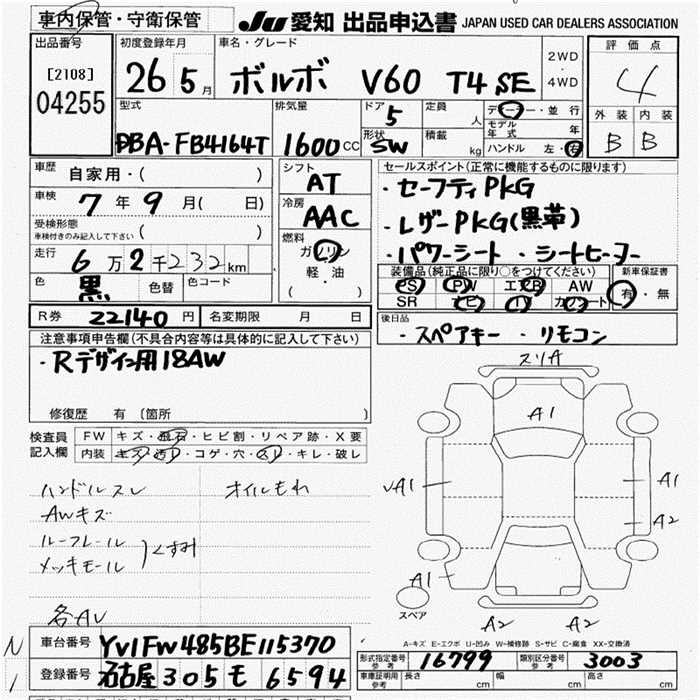 車内保管・守衛保管
JU 愛知 出品申込書 JAPAN USED CAR DEALERS ASSOCIATION
出品番号 初度登録年月 車名・グレード 評価点
[2108] 04255
26年 5月 ボルボ V60 T4 SE
2WD ・ 4WD
4
外装 内装
B B
型式 排気量 ドア 定員 ディーラー・並行
DBA-FB4164T 1600cc 5 人
形状 積載 モデル年式 年
SW kg ハンドル 左・右
車歴 自家用・( )
シフト AT
セールスポイント(正常に機能するものに限ります)
・セーフティPKG
車検 7年9月( 日)
冷房 AAC
・レザーPKG(黒革)
受検形態
車検付きのみ記入して下さい ( )
燃料 ガソリン
軽・油
( )
・パワーシート ・シートヒーター
走行 6万2千232km
装備品(純正品に限り○をつけてください) 新車保証書
PS PW エアB AW
SR ナビ カワシート
有・無
色 黒 色替 色コード
R券 22140円 名変期限 月 日
後日品
・スペアキー ・リモコン
注意事項申告欄(不具合内容等は具体的に記入して下さい)
・Rデザイン用18AW
修復歴 有 〔箇所 〕
検査員記入欄
FW キズ・飛石・ヒビ割・リペア跡・X要
内装 キズ・汚レ・コゲ・穴・スレ・キレ・破レ
ハンドルスレ オイルもれ
AWキズ
ルーフレール
メッキモール
くすみ
スリA
A1
A1
A1
A2
A1
スペア
A2 A2
A-キズ E-エクボ U-凹み W-補修跡 S-サビ C-腐食 XX-交換済
N
1
車台番号 YV1FW485BE1115370
登録番号 名古屋 305 モ 6594
型式指定番号 参考 16799 類別区分番号 参考 3003
車庫証明用 参考 長さ cm 幅 cm 高さ cm